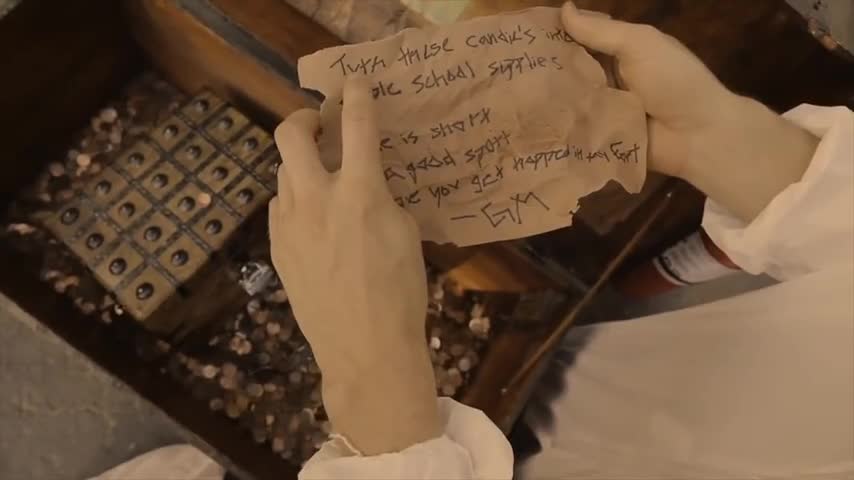 Turn these candle's into
ple School supplies
e is short
a good spot
ve you get trapped in
-GM